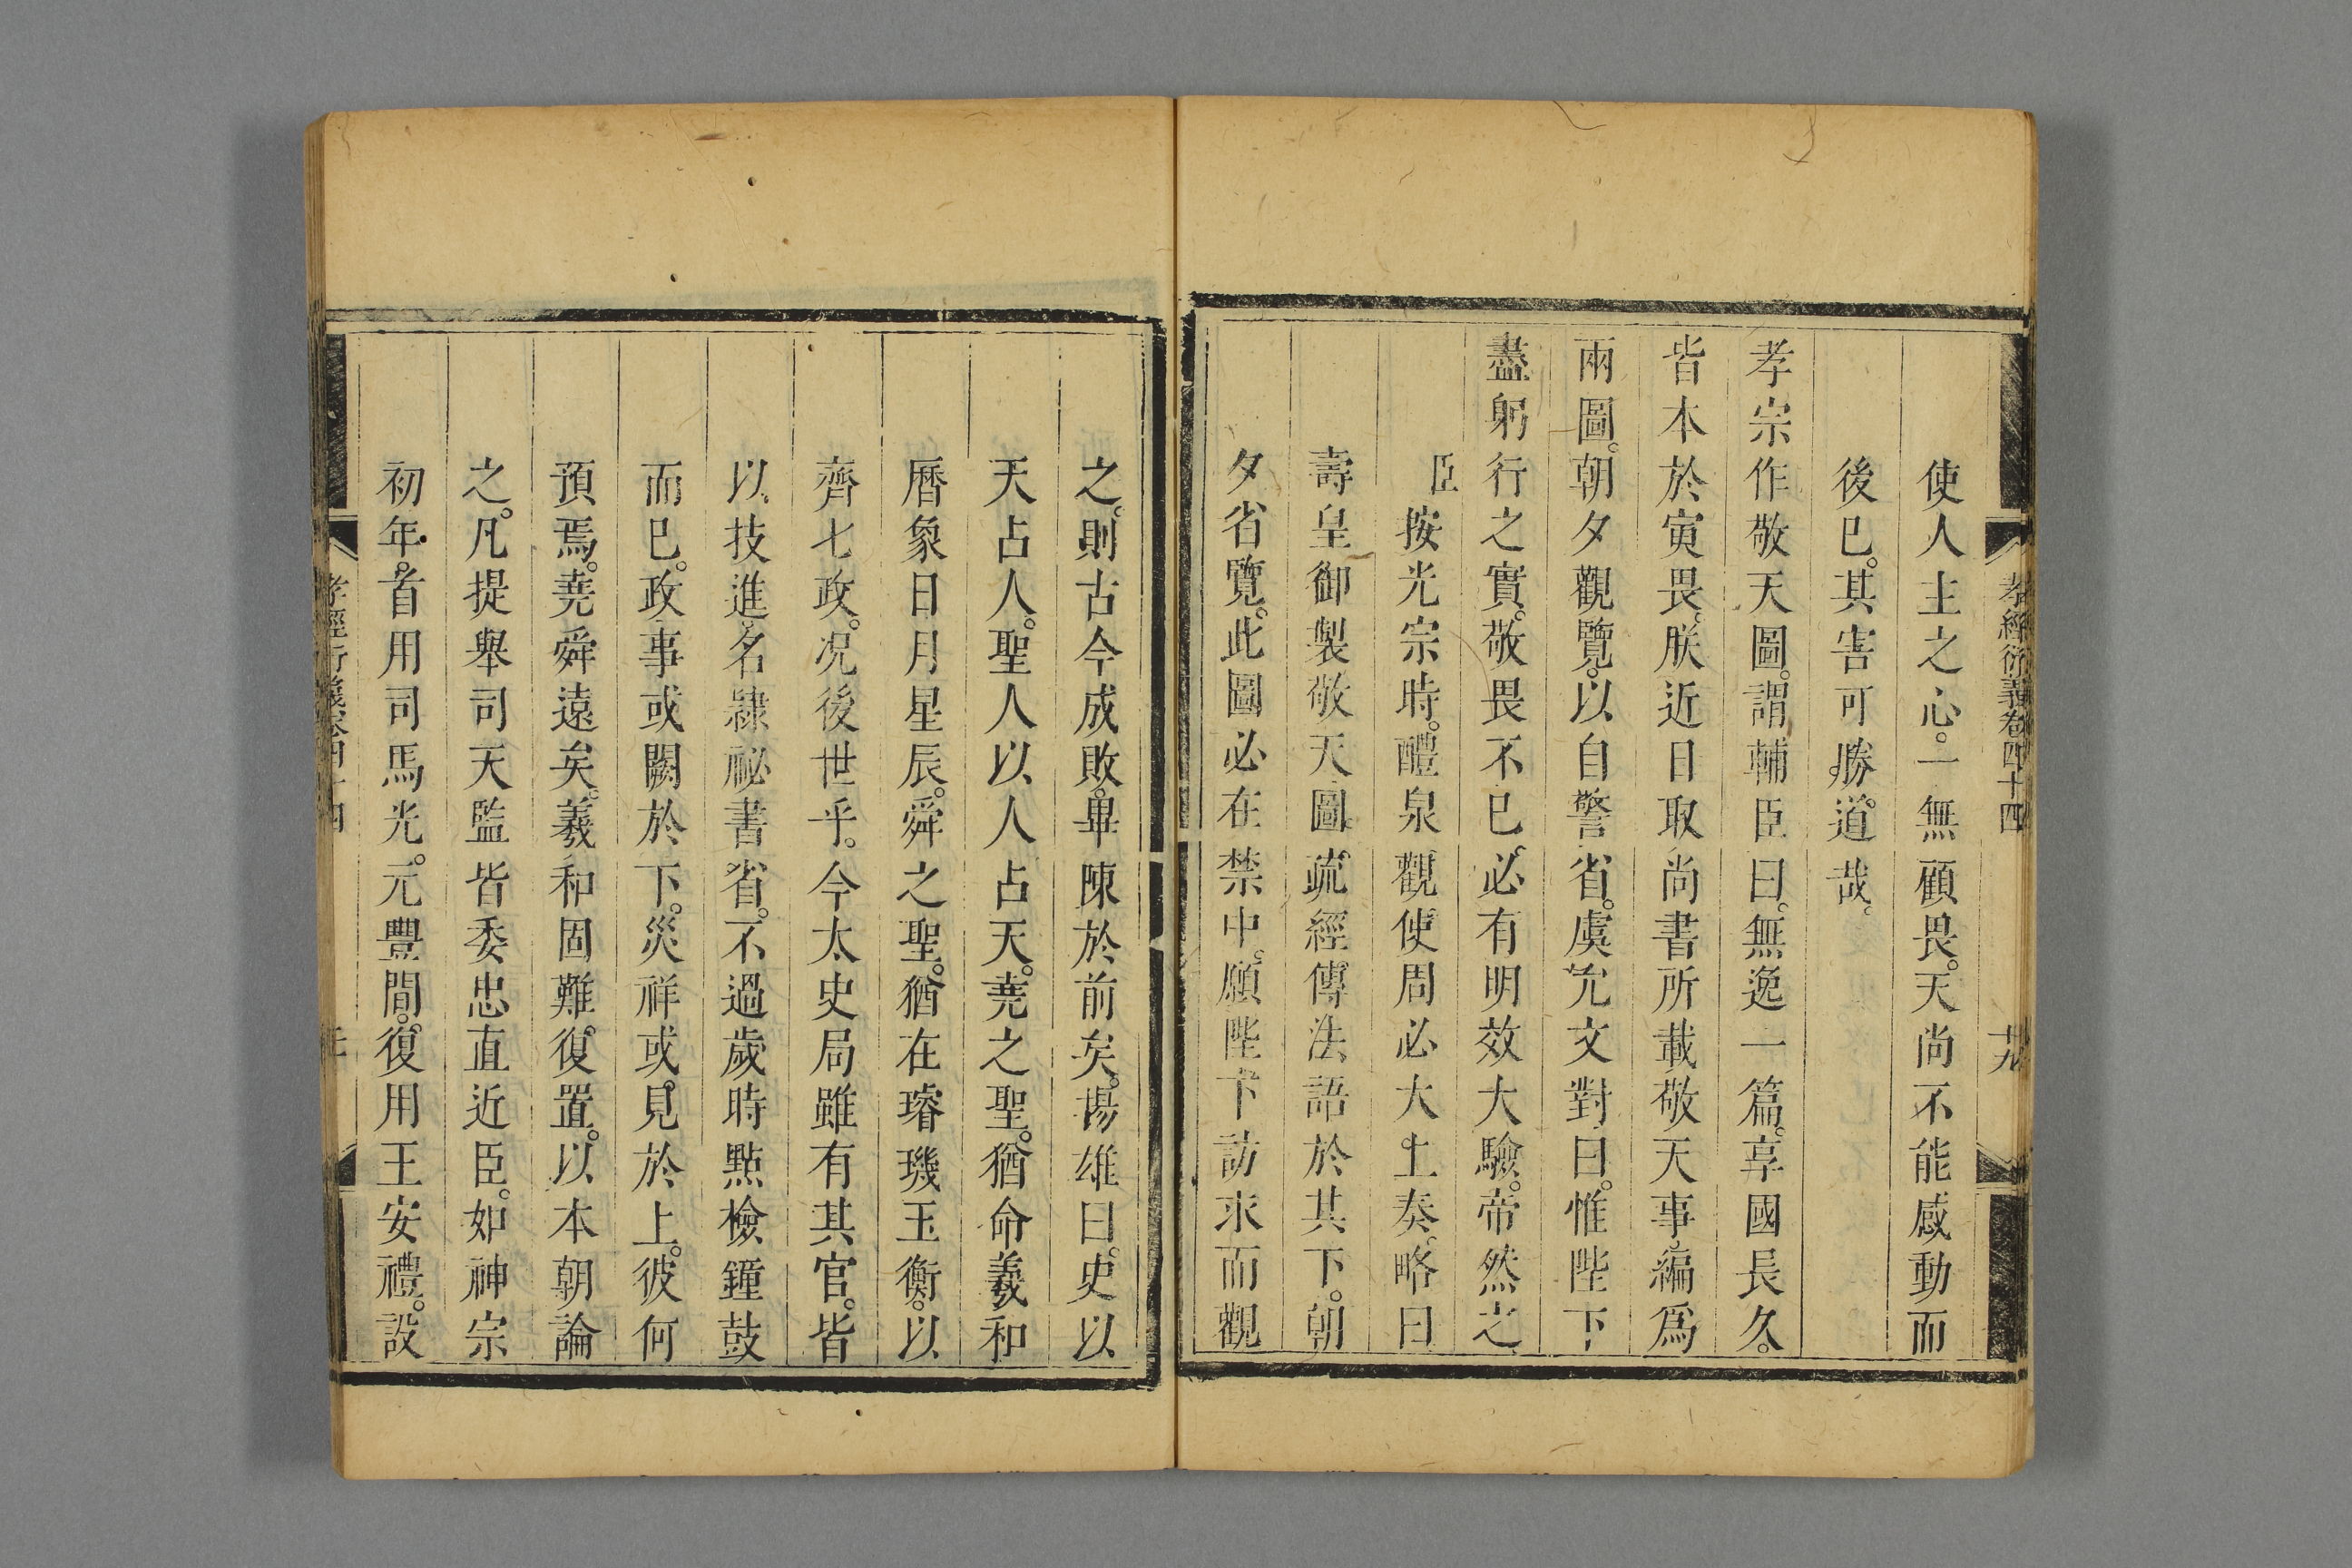 孝經衍義卷四十四
十九
使人主之心。一無顧畏。天尚不能感動而
後已。其害可勝道哉。
孝宗作敬天圖。謂輔臣曰。無逸一篇。享國長久。
皆本於寅畏。朕近日取尚書所載敬天事。編爲
兩圖。朝夕觀覽。以自警省。虞允文對曰。惟陛下
盡躬行之實。敬畏不已。必有明效大驗。帝然之。
臣按光宗時。醴泉觀使周必大上奏。略曰
壽皇御製敬天圖。疏經傳法語於其下。朝
夕省覽。此圖必在禁中。願陛下訪求而觀
之。則古今成敗。畢陳於前矣。揚雄曰。史以
天占人。聖人以人占天。堯之聖。猶命羲和
曆象日月星辰。舜之聖。猶在璿璣玉衡。以
齊七政。况後世乎。今太史局雖有其官。皆
以技進。名隸祕書省。不過歲時點檢鐘鼓
而已。政事或闕於下。災祥或見於上。彼何
預焉。堯舜遠矣。羲和固難復置。以本朝論
之。凡提舉司天監皆委忠直近臣。如神宗
初年。首用司馬光。元豐間。復用王安禮。設
孝經衍義卷四十四